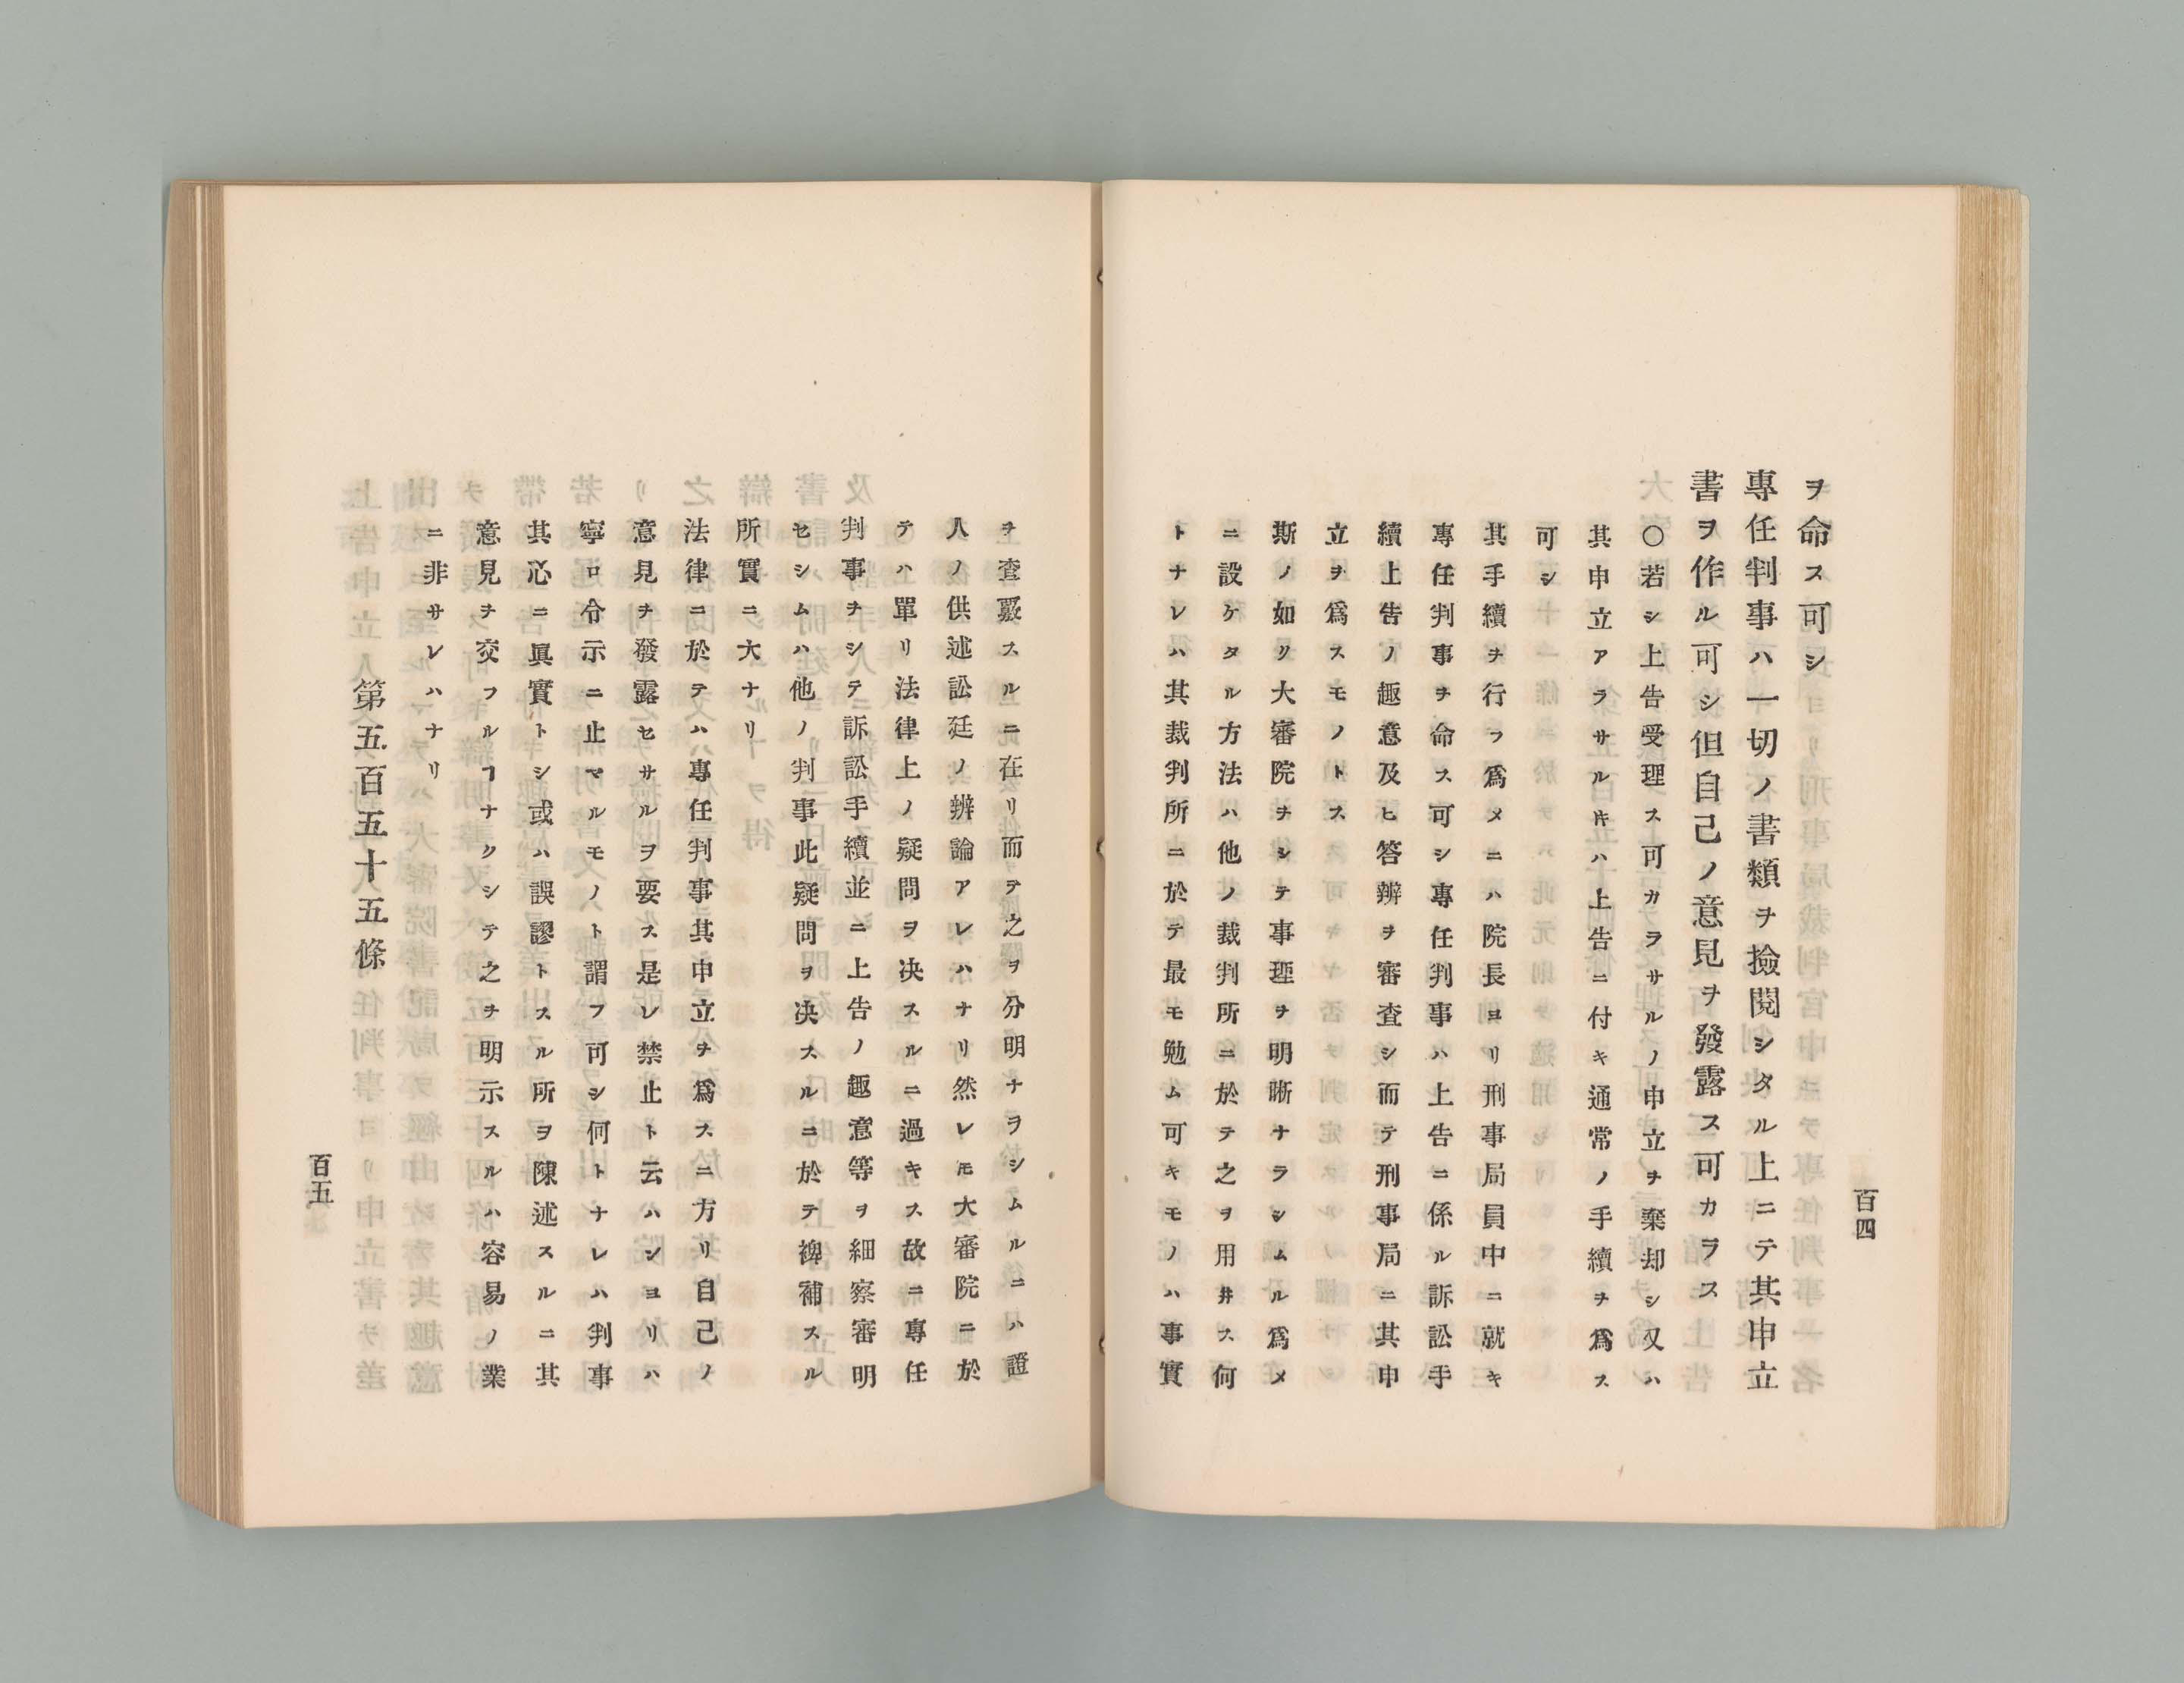 百四
ヲ命ス可シ
專任判事ハ一切ノ書類ヲ撿閱シタル上ニテ其申立
書ヲ作ル可シ但自己ノ意見ヲ發露ス可カラス
〇若シ上告受理ス可カラサルノ申立ヲ棄却シ又ハ
其申立アラサルキハ上告ニ付キ通常ノ手續ヲ爲ス
可シ
其手續ヲ行フ爲メニハ院長ヨリ刑事局員中ニ就キ
專任判事ヲ命ス可シ專任判事ハ上告ニ係ル訴訟手
續上告ノ趣意及ヒ答辨ヲ審査シ而テ刑事局ニ其申
立ヲ爲スモノトス
斯ノ如ク大審院ヲシテ事理ヲ明晰ナラシムル爲メ
ニ設ケタル方法ハ他ノ裁判所ニ於テ之ヲ用井ス何
トナレハ其裁判所ニ於テ最モ勉ム可キモノハ事實
ヲ査覈スルニ在リ而テ之ヲ分明ナラシムルニハ證
人ノ供述訟廷ノ辨論アレハナリ然レモ大審院ニ於
テハ單リ法律上ノ疑問ヲ决スルニ過キス故ニ專任
判事ヲシテ訴訟手續並ニ上告ノ趣意等ヲ細察審明
セシムハ他ノ判事此疑問ヲ决スルニ於テ裨補スル
所實ニ大ナリ
法律ニ於テハ專任判事其申立ヲ爲スニ方リ自己ノ
意見ヲ發露セサルヲ要ス是レ禁止ト云ハンヨリハ
寧ロ令示ニ止マルモノト謂フ可シ何トナレハ判事
其心ニ眞實トシ或ハ誤謬トスル所ヲ陳述スルニ其
意見ヲ交フルヿナクシテ之ヲ明示スルハ容易ノ業
ニ非サレハナリ
第五百五十五條
百五